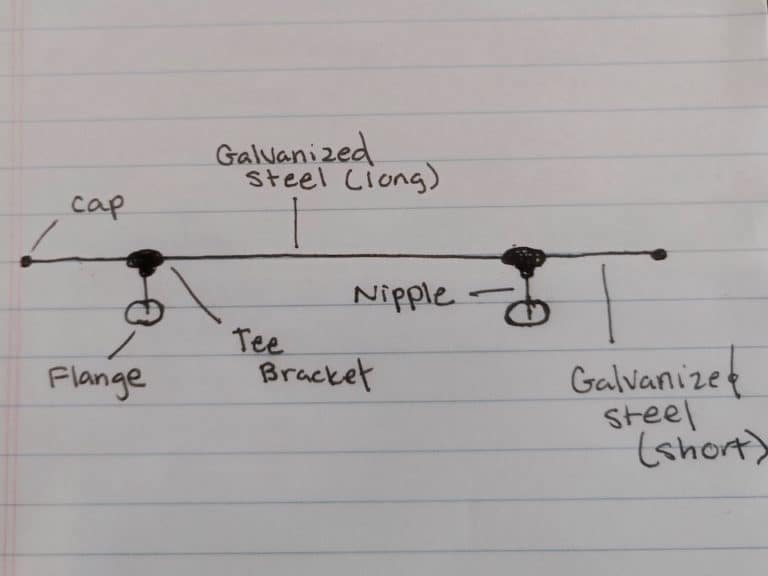 Galvanized
steel (long)
cap
Nipple
Tee
Bracket
Flange
Galvanized
steel
(short)